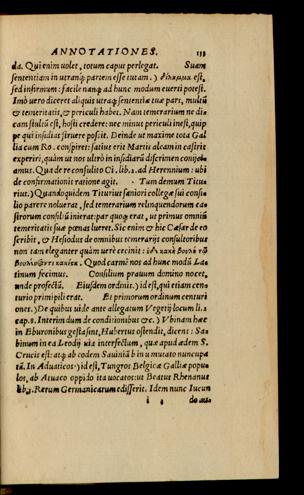 ANNOTATIONES. 133
da. Qui enim uolet, totum caput perlegat. Suam
sententiam in utranq; partem esse tutam. ) δίλημμα est,
sed infirmum: facile nanq; ad hunc modum euerti potest.
Imò uero diceret aliquis utraq; sententia tuæ pars, multũ
& temeritatis, & periculi habet. Nam temerarium ne di=
cam stultũ est, hosti credere: nec minus periculi inest, quip
pe qui insidias struere possit. Deinde ut maxime tota Gal
lia cum Ro. conspiret: satius erit Martis aleam in castris
experiri, quàm ut nos ultrò in insidiarũ discrimen conijcia
amus. Qua de re consulito Ci. lib. 1. ad Herennium: ubi
de confirmationis ratione agit. Tum demum Titu=
rius.) Quandoquidem Titurius seniori collegæ sui consi=
lio parere noluerat, sed temerarium relinquendorum ca=
strorum consiliũ inierat: par quoq; erat, ut primus omniũ
temeritatis suæ pœnas lueret. Sic enim & hic Cæsar de eo
scribit, & Hesiodus de omnibus temerarijs consultoribus
non tam eleganter quàm uerè cecinit: ἡ δὲ κακὴ βουλὴ τῷ
βουλεύσαντι κακίστη. Quod carmẽ nos ad hunc modũ La=
tinum fecimus. Consilium prauum domino nocet,
unde profectũ. Eiusdem ordinis.) id est, qui etiam cen=
turio primipili erat. Et primorum ordinum centuri
ones.) De quibus uide ante allegatum Vegetij locum li. 2
cap. 8. Interim dum de conditionibus &c. ) Vbinam hæc
in Eburonibus gesta sint, Hubertus ostendit, dicens: Sa=
binum in ea Leodij uia interfectum, quæ apud ædem S.
Crucis est: atq; ab eodem Sauiniã b in u mutato nuncupa
tũ. In Aduaticos.) id est, Tungros Belgicæ Galliæ popu
los, ab Atuaco oppido ita uocatos: ut Beatus Rhenanus
lib. 3. Rerum Germanicarum edisserit. Idem nunc Iucun
i 3 do au=